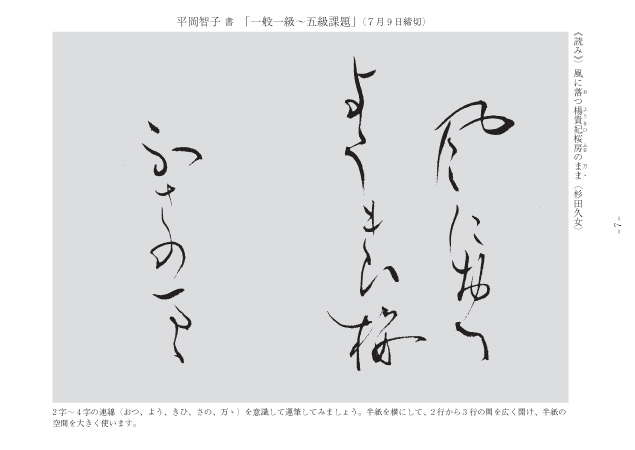 平岡智子 書 「一般一級～五級課題」（７月９日締切）
《読み》 風に落つ楊貴妃桜房のまま（杉田久女）
風に於つ
ようきひ桜
ふさの万ゝ
２字～４字の連綿（おつ、よう、きひ、さの、万ゝ）を意識して運筆してみましょう。半紙を横にして、２行から３行の間を広く開け、半紙の
空間を大きく使います。
- 7 -